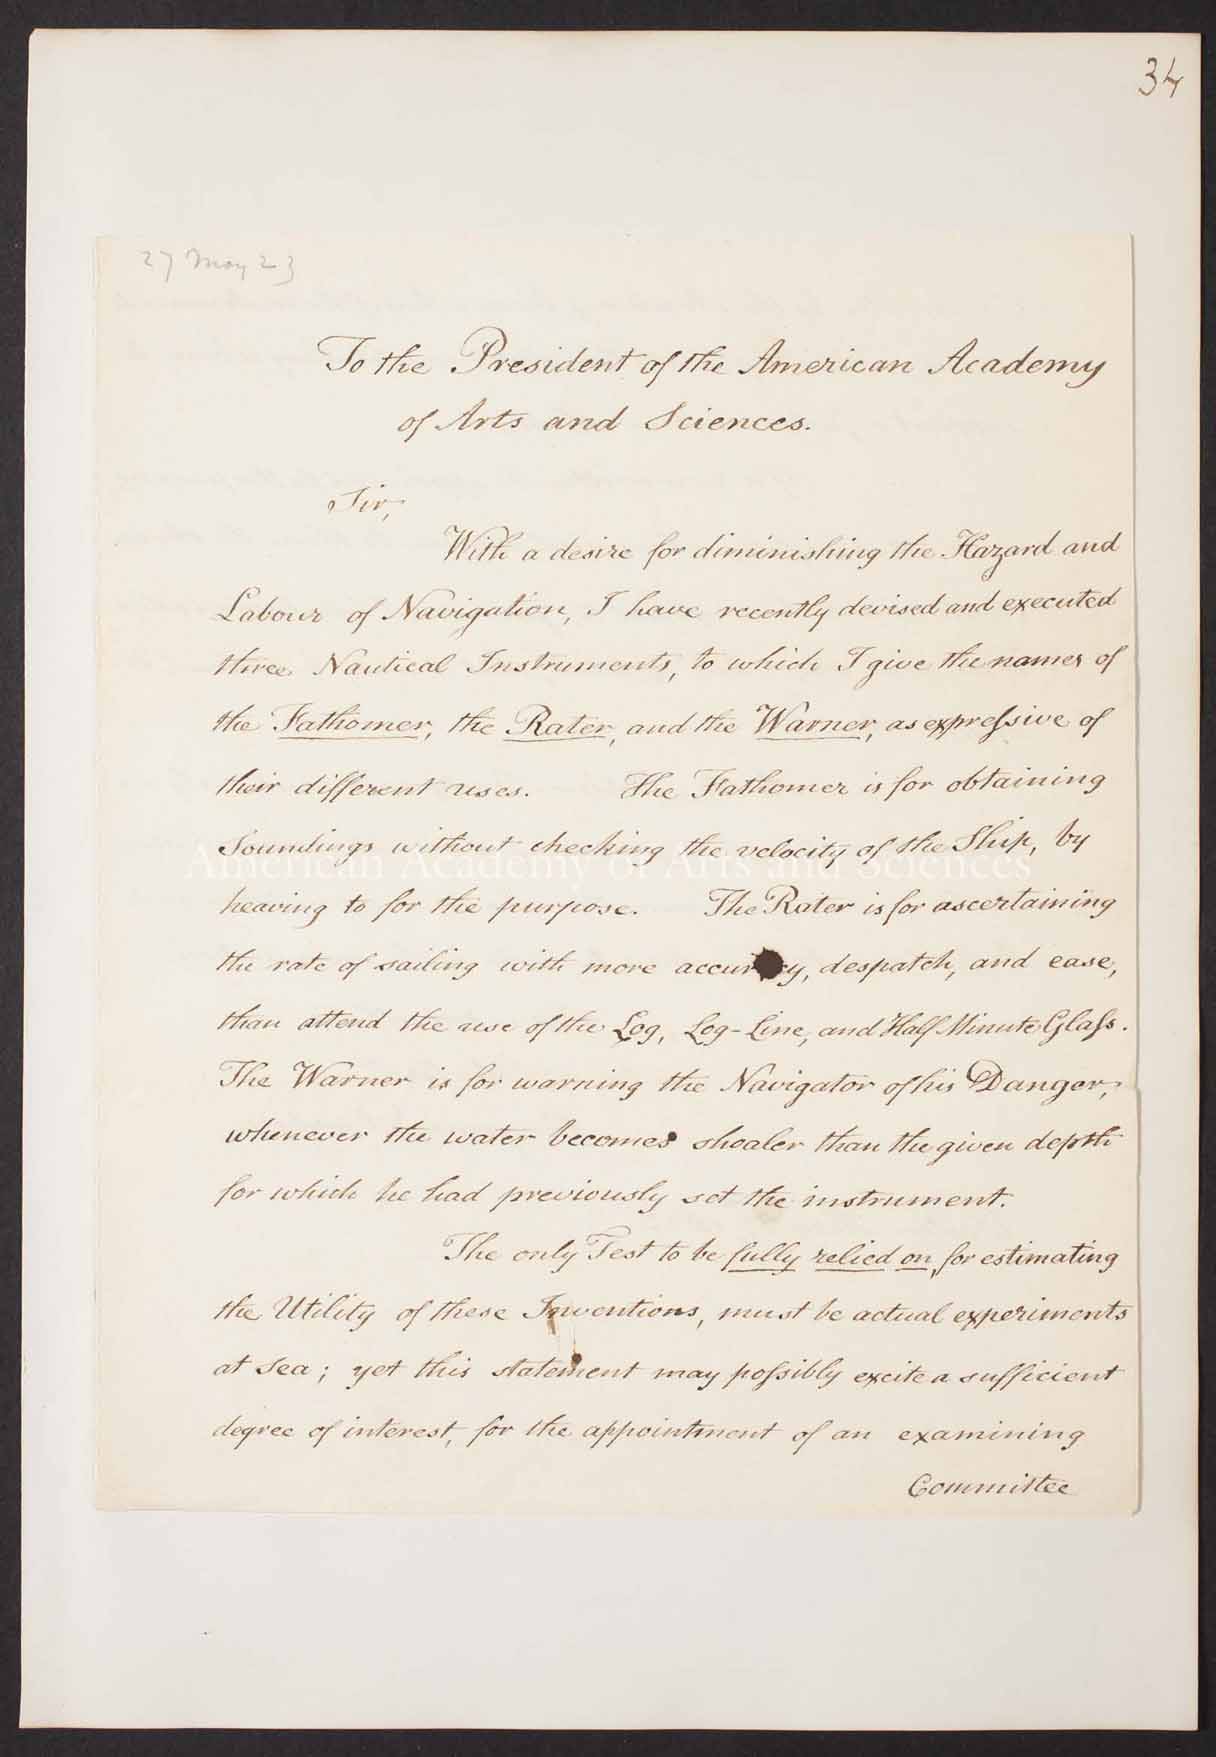 34
27 May 23
To the President of the American Academy
of Arts and Sciences.
Sir,
With a desire for diminishing the Hazard and
Labour of Navigation, I have recently devised and executed
three Nautical Instruments, to which I give the names of
the Fathomer, the Rater, and the Warner, as expreſsive of
their different uses. The Fathomer is for obtaining
Soundings without checking the velocity of the Ship, by
American Academy of Arts and Sciences
heaving to for the purpose. The Rater is for ascertaining
the rate of sailing with more accuracy, despatch, and ease,
than attend the use of the Log, Log-Line, and Half Minute Glaſs.
The Warner is for warning the Navigator of his Danger,
whenever the water becomes shoaler than the given depth
for which he had previously set the instrument.
The only Test to be fully relied on, for estimating
the Utility of these Inventions, must be actual experiments
at Sea; yet this statement may poſsibly excite a sufficient
degree of interest, for the appointment of an examining
Committee